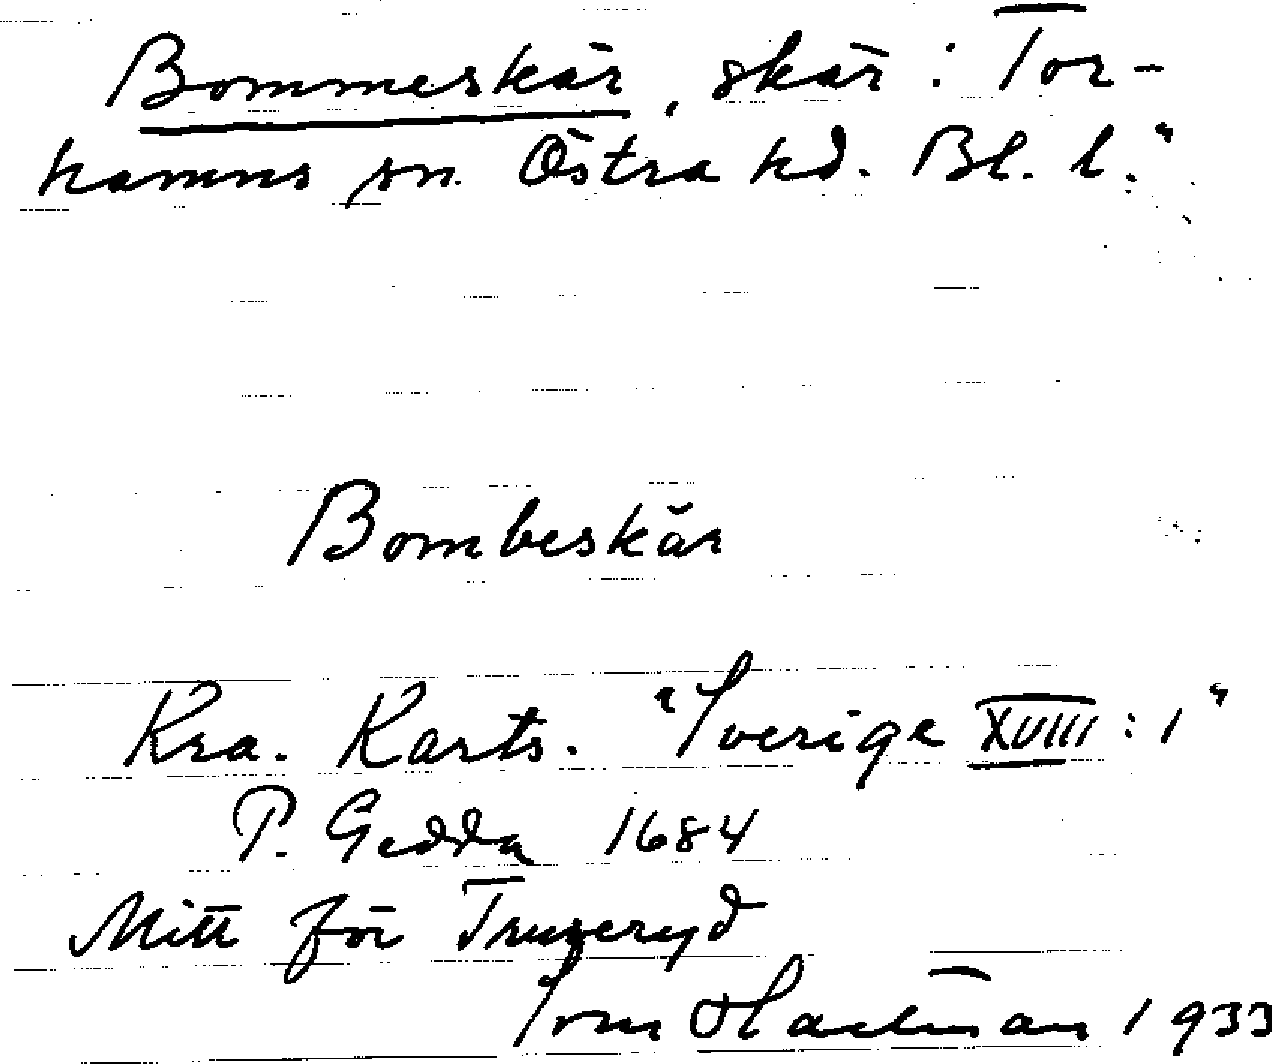 Bommeskär, skär i Tor-
hamns sn. Östra hd. Bl. l."
Bombeskär
Kra. Karts. "Sverige XVIII : 1"
P. Gedda 1684
Mitt för Truseryd
1933